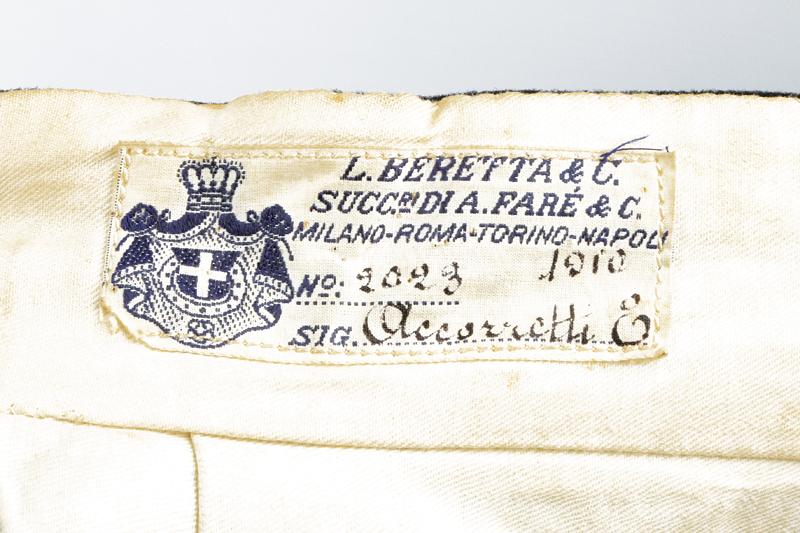 L. BERETTA & C.
SUCC.RI DI A. FARÉ & C.
MILANO-ROMA-TORINO-NAPOLI
No: 2023 1910
SIG. Accorretti E